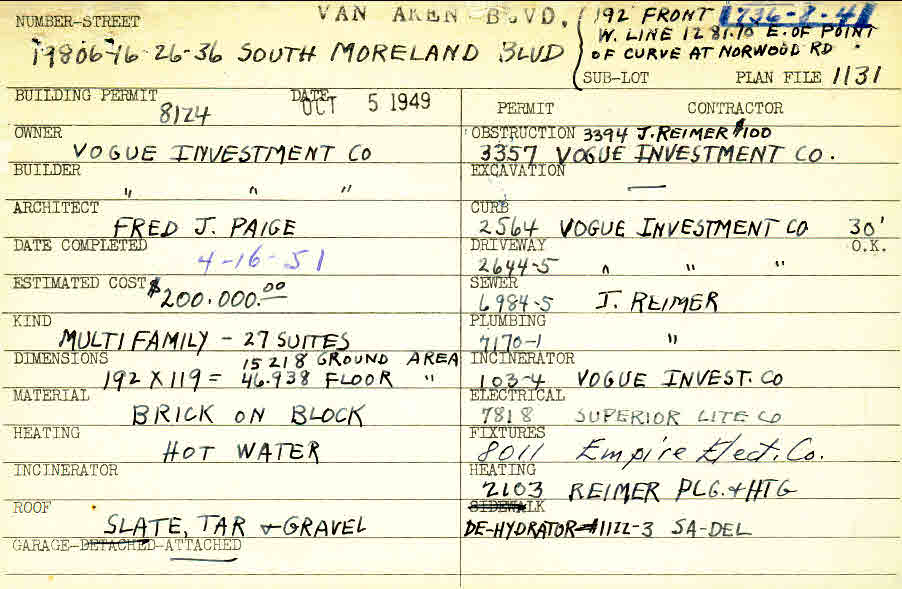 NUMBER-STREET VAN AKEN BLVD. 192' FRONT 736-8-41
W. LINE 1281.70 E. OF POINT
19806-16-26-36 SOUTH MORELAND BLVD OF CURVE AT NORWOOD RD
SUB-LOT PLAN FILE 1131
BUILDING PERMIT 8124 DATE OCT 5 1949
PERMIT CONTRACTOR
OWNER VOGUE INVESTMENT CO
OBSTRUCTION 3394 J. REIMER $100
3357 VOGUE INVESTMENT CO.
BUILDER " " "
EXCAVATION —
ARCHITECT FRED J. PAIGE
CURB 2564 VOGUE INVESTMENT CO 30'
DATE COMPLETED 4-16-51
DRIVEWAY 2644-5 " " " O.K.
ESTIMATED COST $200.000.00
SEWER 6984-5 J. REIMER
KIND MULTI FAMILY - 27 SUITES
PLUMBING 7170-1 "
DIMENSIONS 15218 GROUND AREA
192 X 119 = 46.938 FLOOR "
INCINERATOR 103-4 VOGUE INVEST. CO
MATERIAL BRICK ON BLOCK
ELECTRICAL 7818 SUPERIOR LITE CO
HEATING HOT WATER
FIXTURES 8011 Empire Elect. Co.
INCINERATOR
HEATING 2103 REIMER PLG. + HTG
ROOF SLATE, TAR + GRAVEL
SIDEWALK
DE-HYDRATOR-#1122-3 SA-DEL
GARAGE-DETACHED-ATTACHED